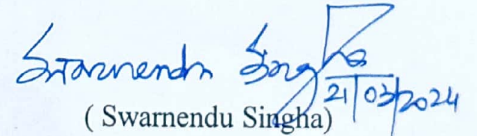 Swarnendu Singha
21/03/2024
( Swarnendu Singha)